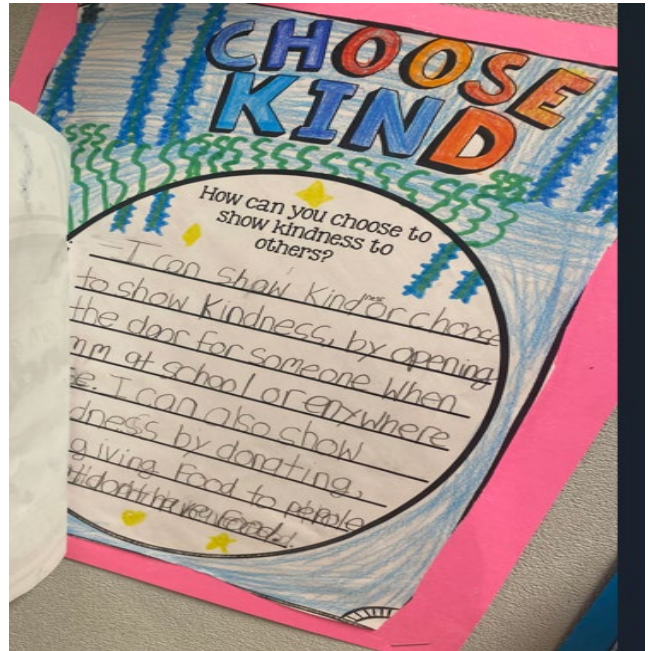 CHOOSE
KIND
How can you choose to
show kindness to
others?
I can show kindness or choose
to show kindness, by opening
the door for someone when
at school or enywhere
I can also show
by donating,
giving food to people
don't have food.